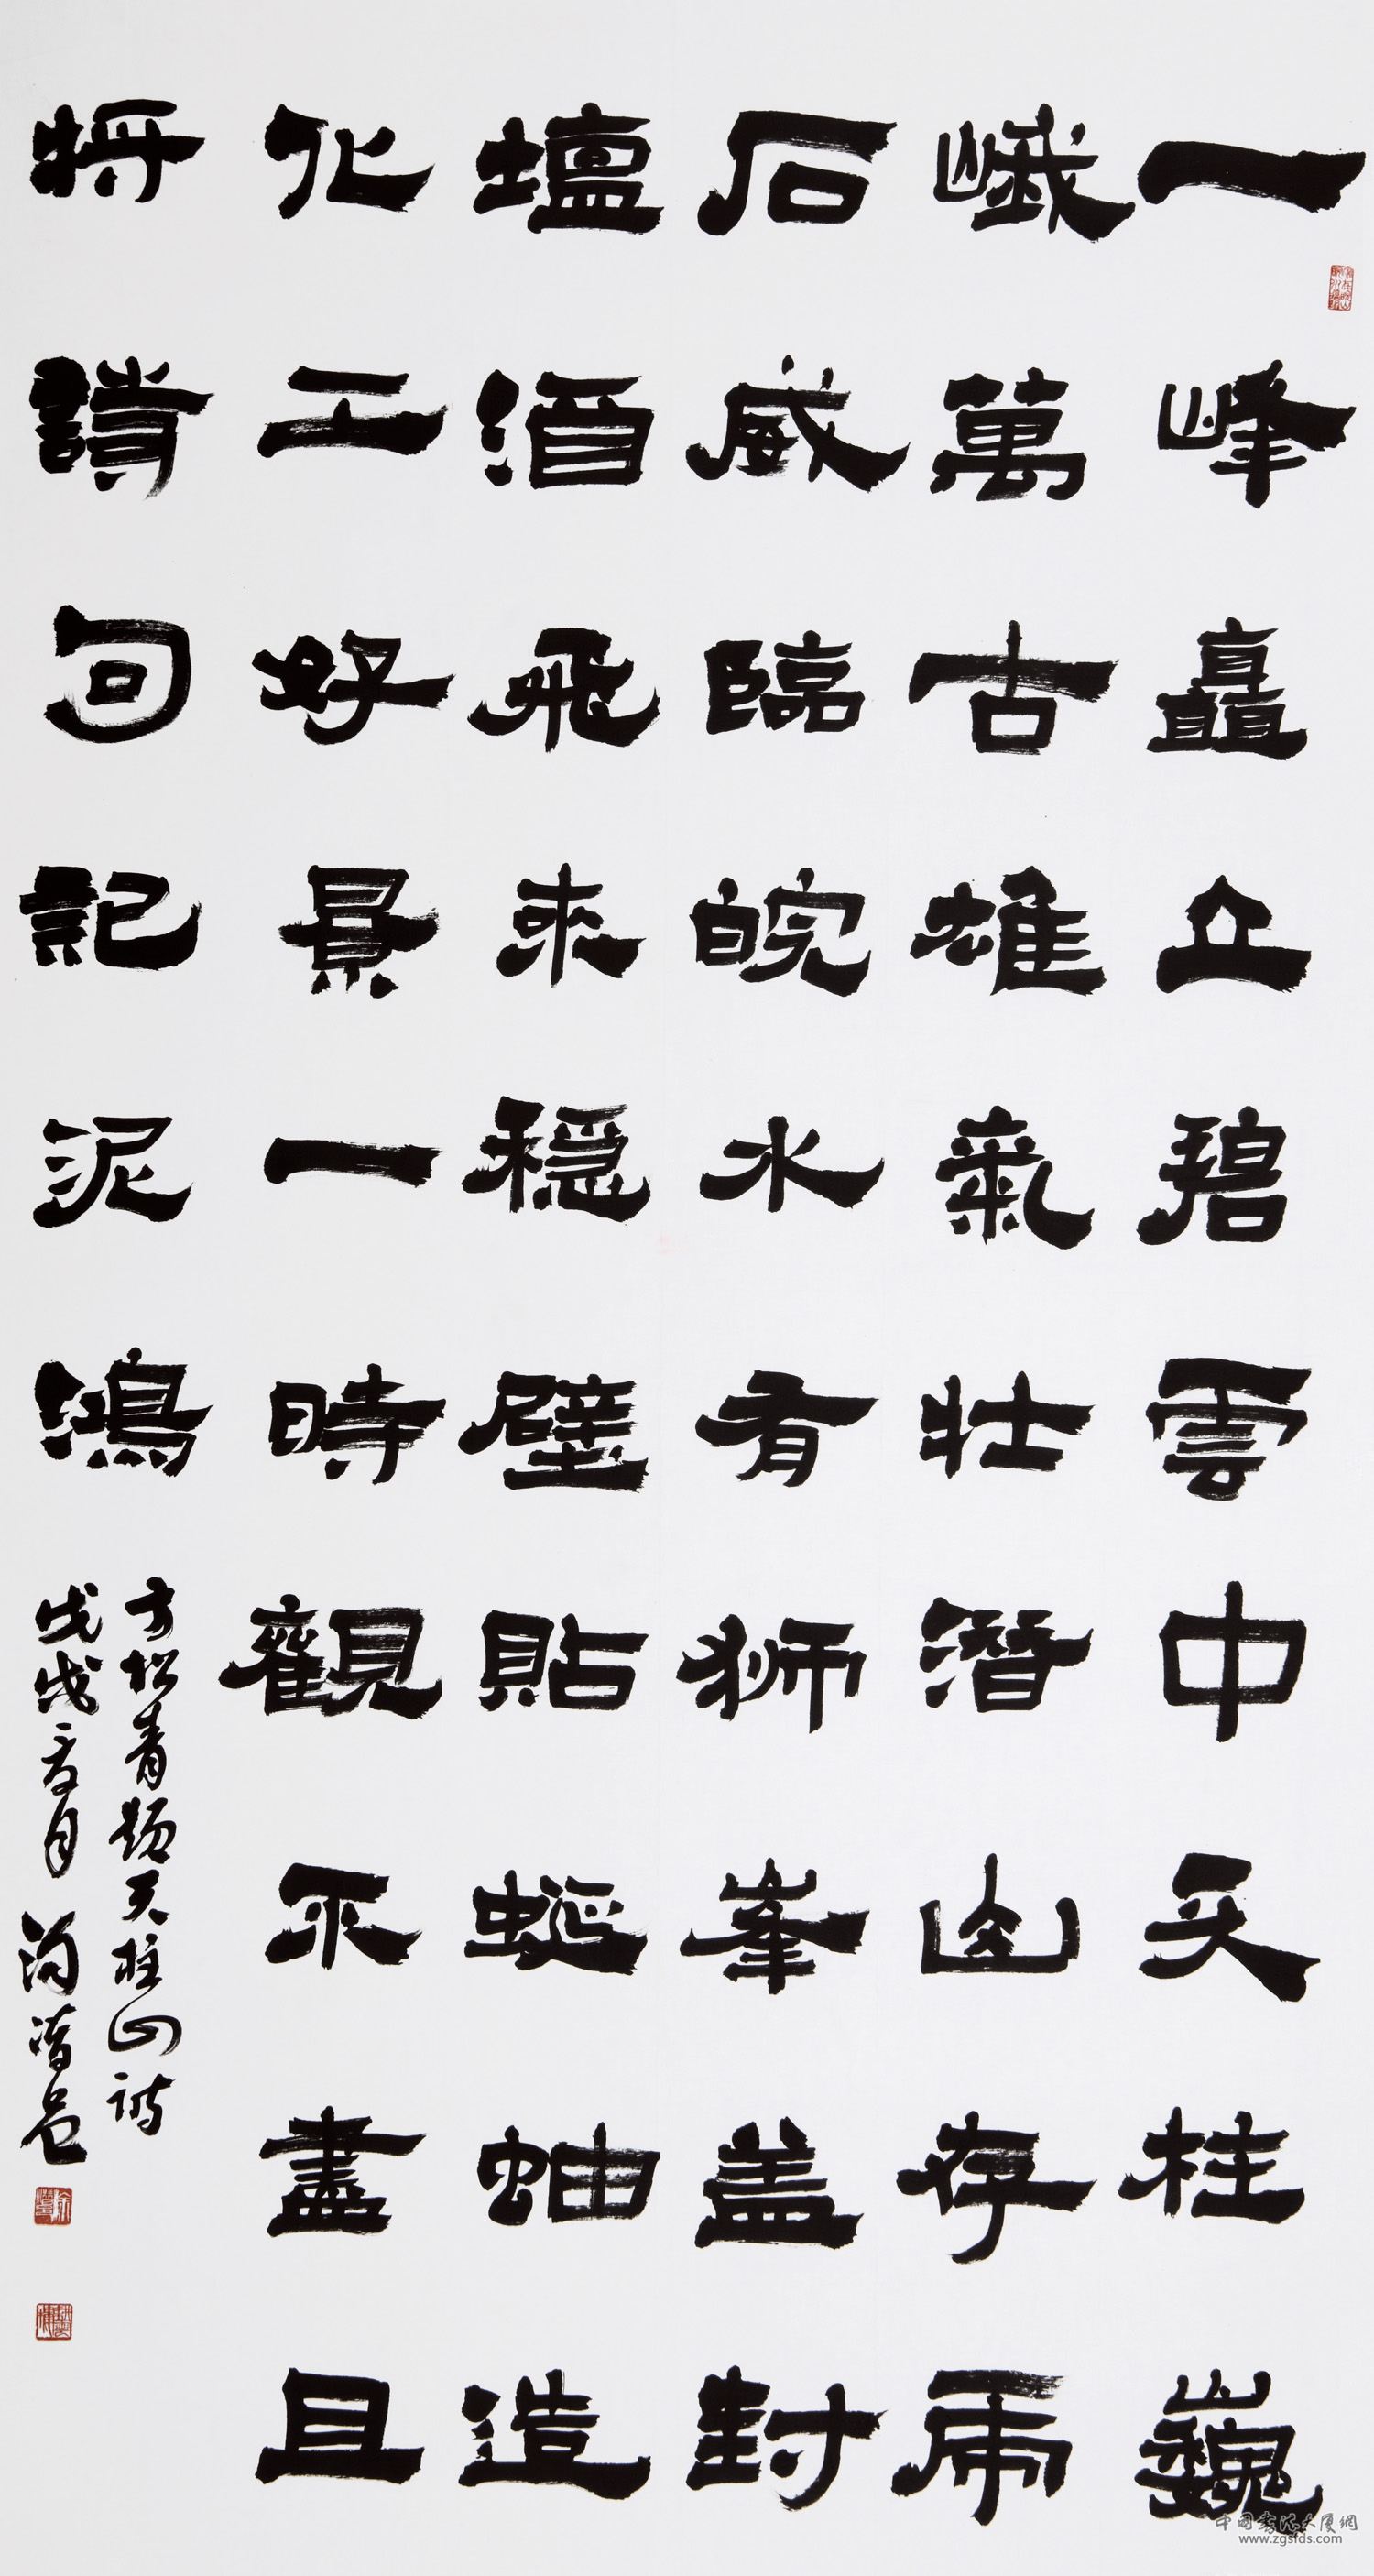 一峰矗立碧雲中天柱巍
峨萬古雄氣壯潛山存虎
石威臨皖水有狮峯盖封
壇酒飛來穩壁貼蜒蚰造
化工好景一時觀不盡且
將詩句記泥鴻
方松青題天柱山詩
戊戌夏月
中国书法大厦网
www.zgsfds.com